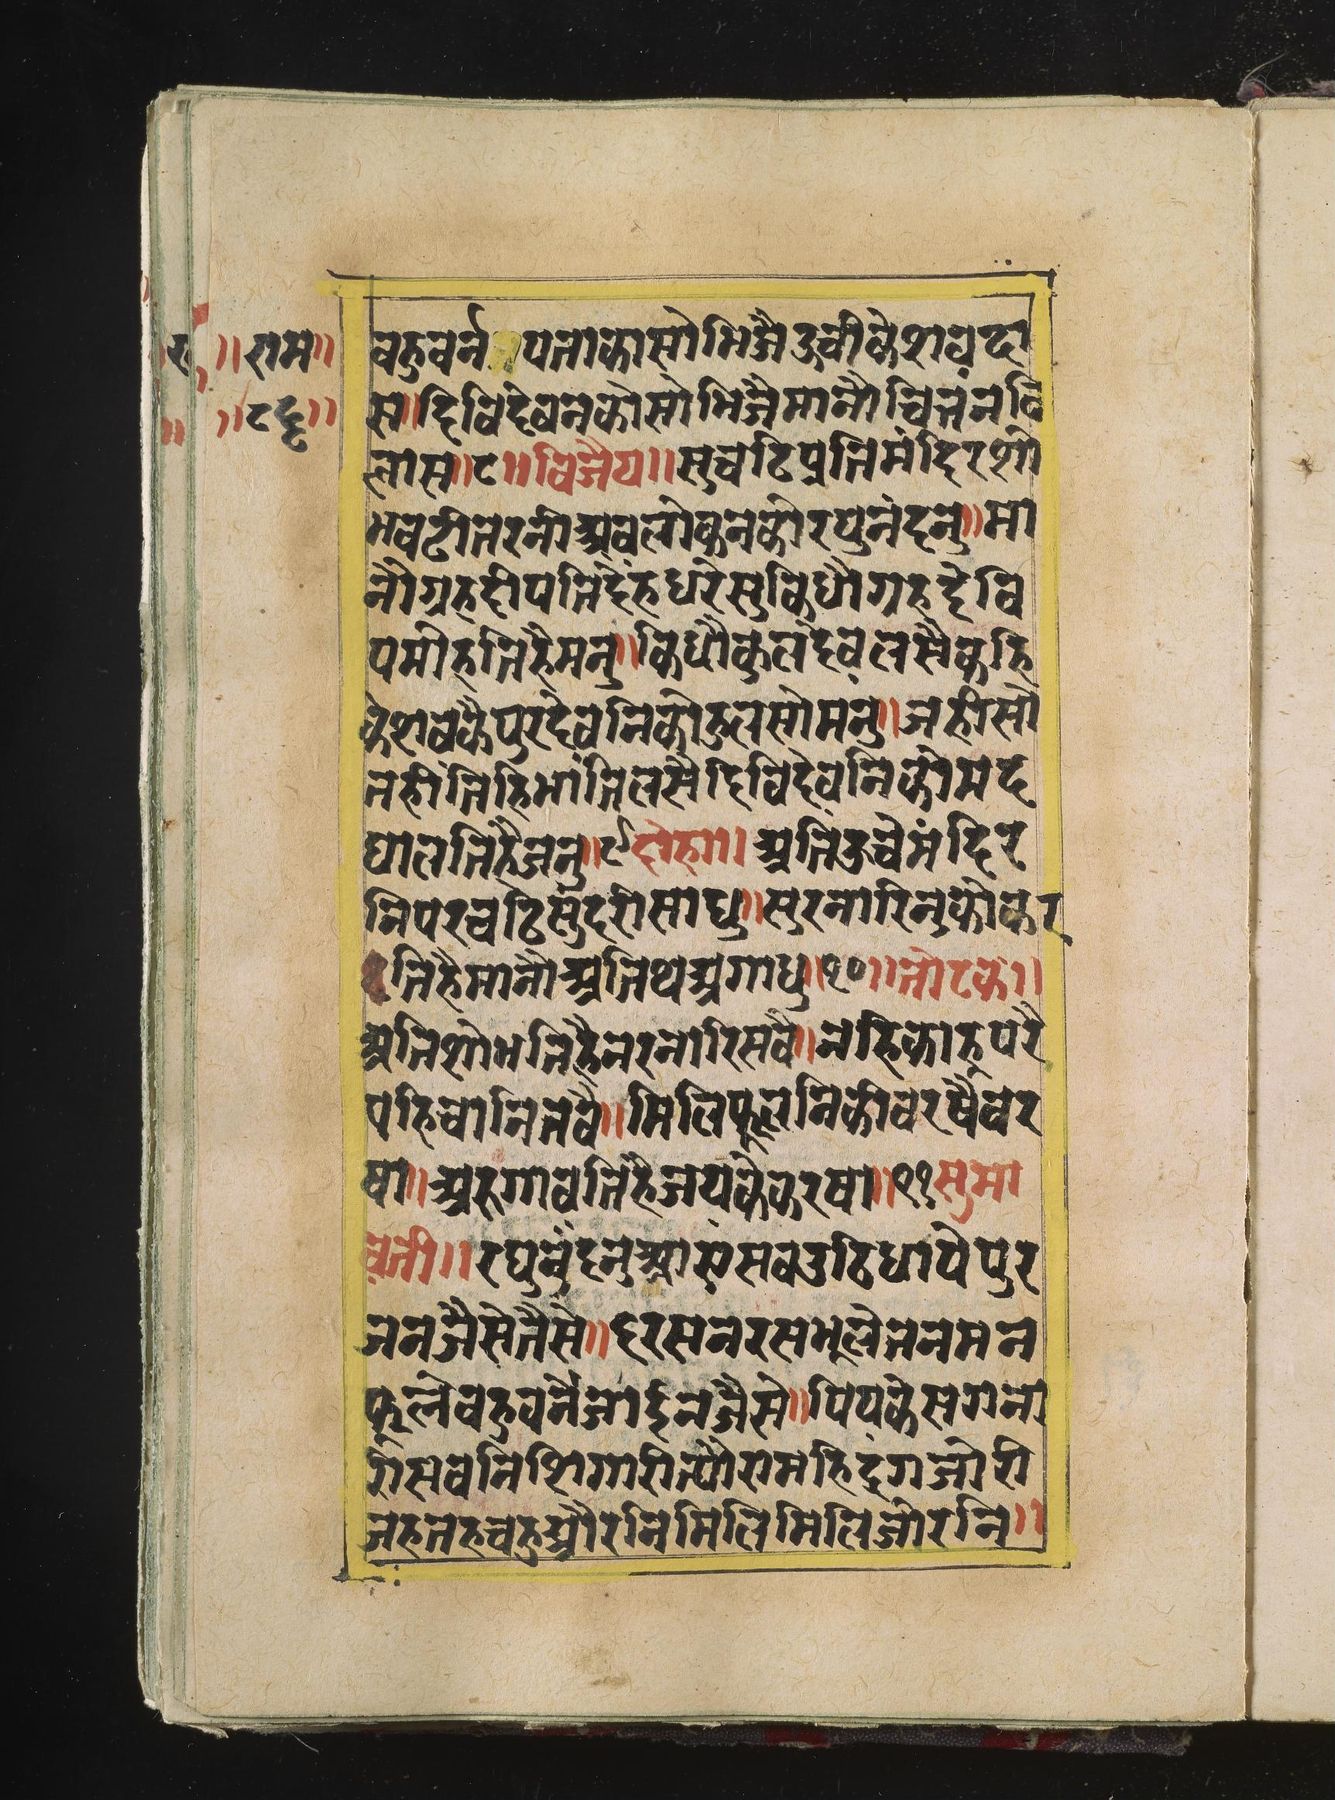 ॥राम॥
॥८६॥
बहुबर्न पताकासोभिजैउबीकेशवदा
स॥दिविदेवनकोसोभिजैमानौबिजनबि
लास॥८॥विजैय॥सुबटिप्रतिमंदिरशो
भबढीतरनीअवलोकनकोरघुनंदनु॥मा
नौग्रहदीपतिदेहधरेसुकिधौगृहदेवि
पमोहतिहैमनु॥किधौकुलदेवलसैकहि
केशवकैपुरदेवनिकोहुलसोमनु॥जहीसो
तहींतिहिभांतिलसैदिविदेवनिकोमद
घालतिहैजनु॥९दोहा॥अतिउचेमंदिर
निपरबटिसुंदरीसाधु॥सुरनारिनुकोकर
तिहैमानौअतिथअगाधु॥१०॥तोटक॥
अतिशोभतिहैनरनारिसबै॥नहिकाहूपरै
पहिचानितबै॥मिलिफूलनिकीबरषैबर
षा॥अरुगावतिहैजयकेकरषा॥११सुमा
वती॥रघुनंदनुआएसबउठिधापेपुर
जनजैसेतैसे॥दरसनरसभूलेतनमन
फूलेबहुबर्नेजाहिनजैसे॥पियकेसगना
रीसबनिशिगारीत्यौरामहिदृगजोरी
जहतहचहुऔरनिमिलिमिलिजोरनि॥